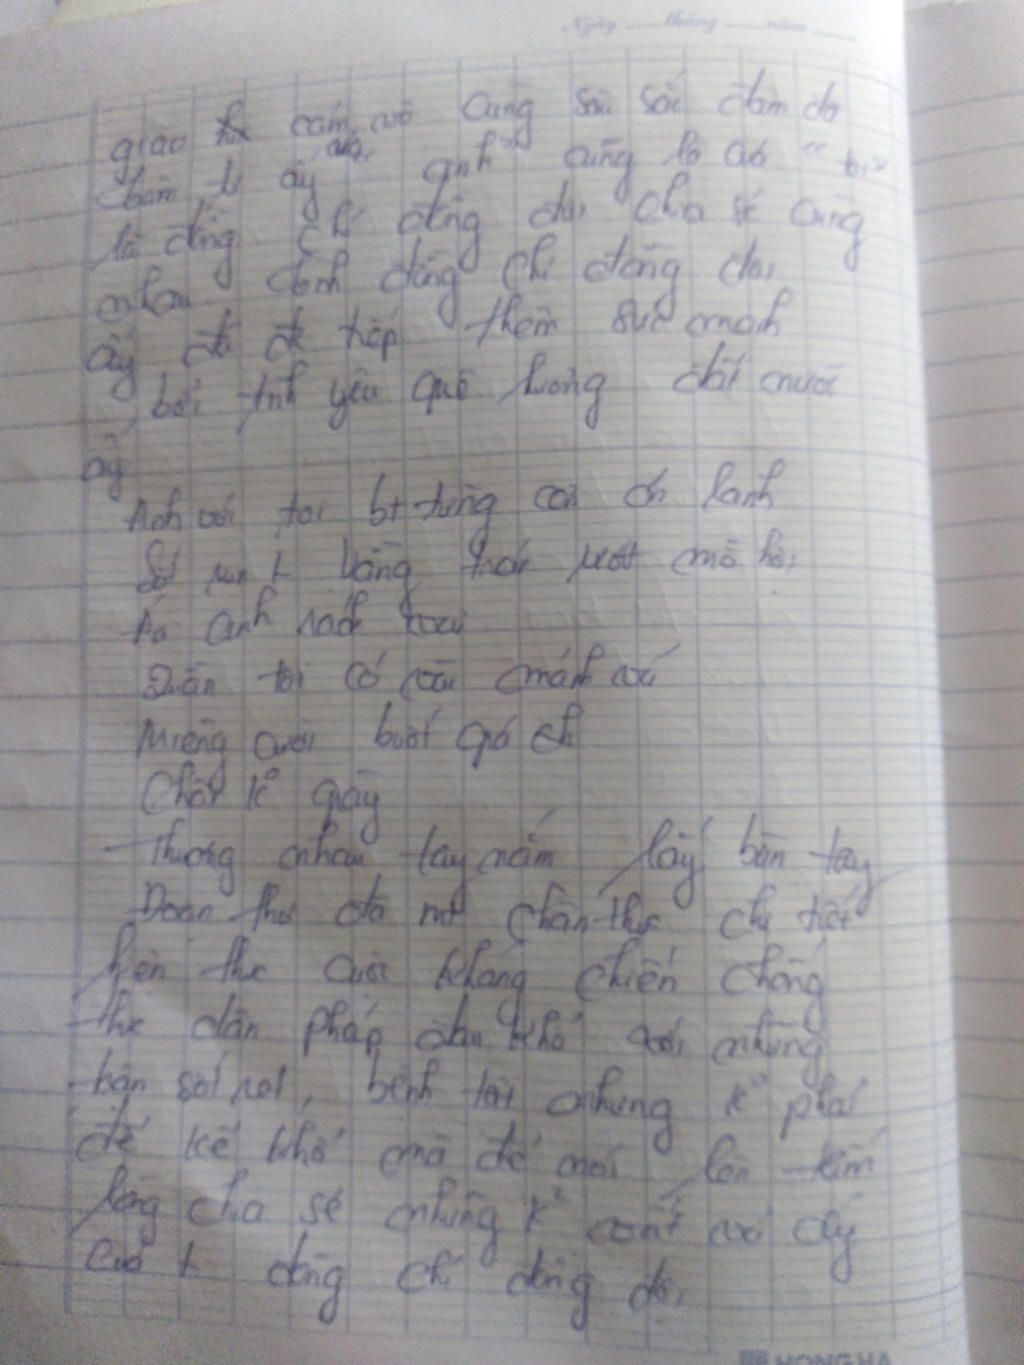 Ngày tháng năm
giao cảm vô cùng sâu sắc đậm đà
ấy "anh" cũng là
là đồng chí đồng đội chia sẻ cùng
nhau tình đồng chí đồng đội
ấy đã tiếp thêm sức mạnh
bởi tình yêu quê hương đất nước
ấy
Anh với tôi bt từng cơn ớn lạnh
Sốt run vầng trán ướt mồ hôi
Áo anh rách vai
Quần tôi có vài mảnh vá
Miệng cười buốt giá
Chân k giày
Thương nhau tay nắm lấy bàn tay
Đoạn thơ đã chân thực chi tiết
hiện thực cuộc kháng chiến chống
thực dân pháp khổ với những
trận sốt rét, bệnh tật nhưng k phải
để kể khổ mà để nói lên tấm
lòng chia sẻ những
của t đồng chí đồng đội
HONG HA